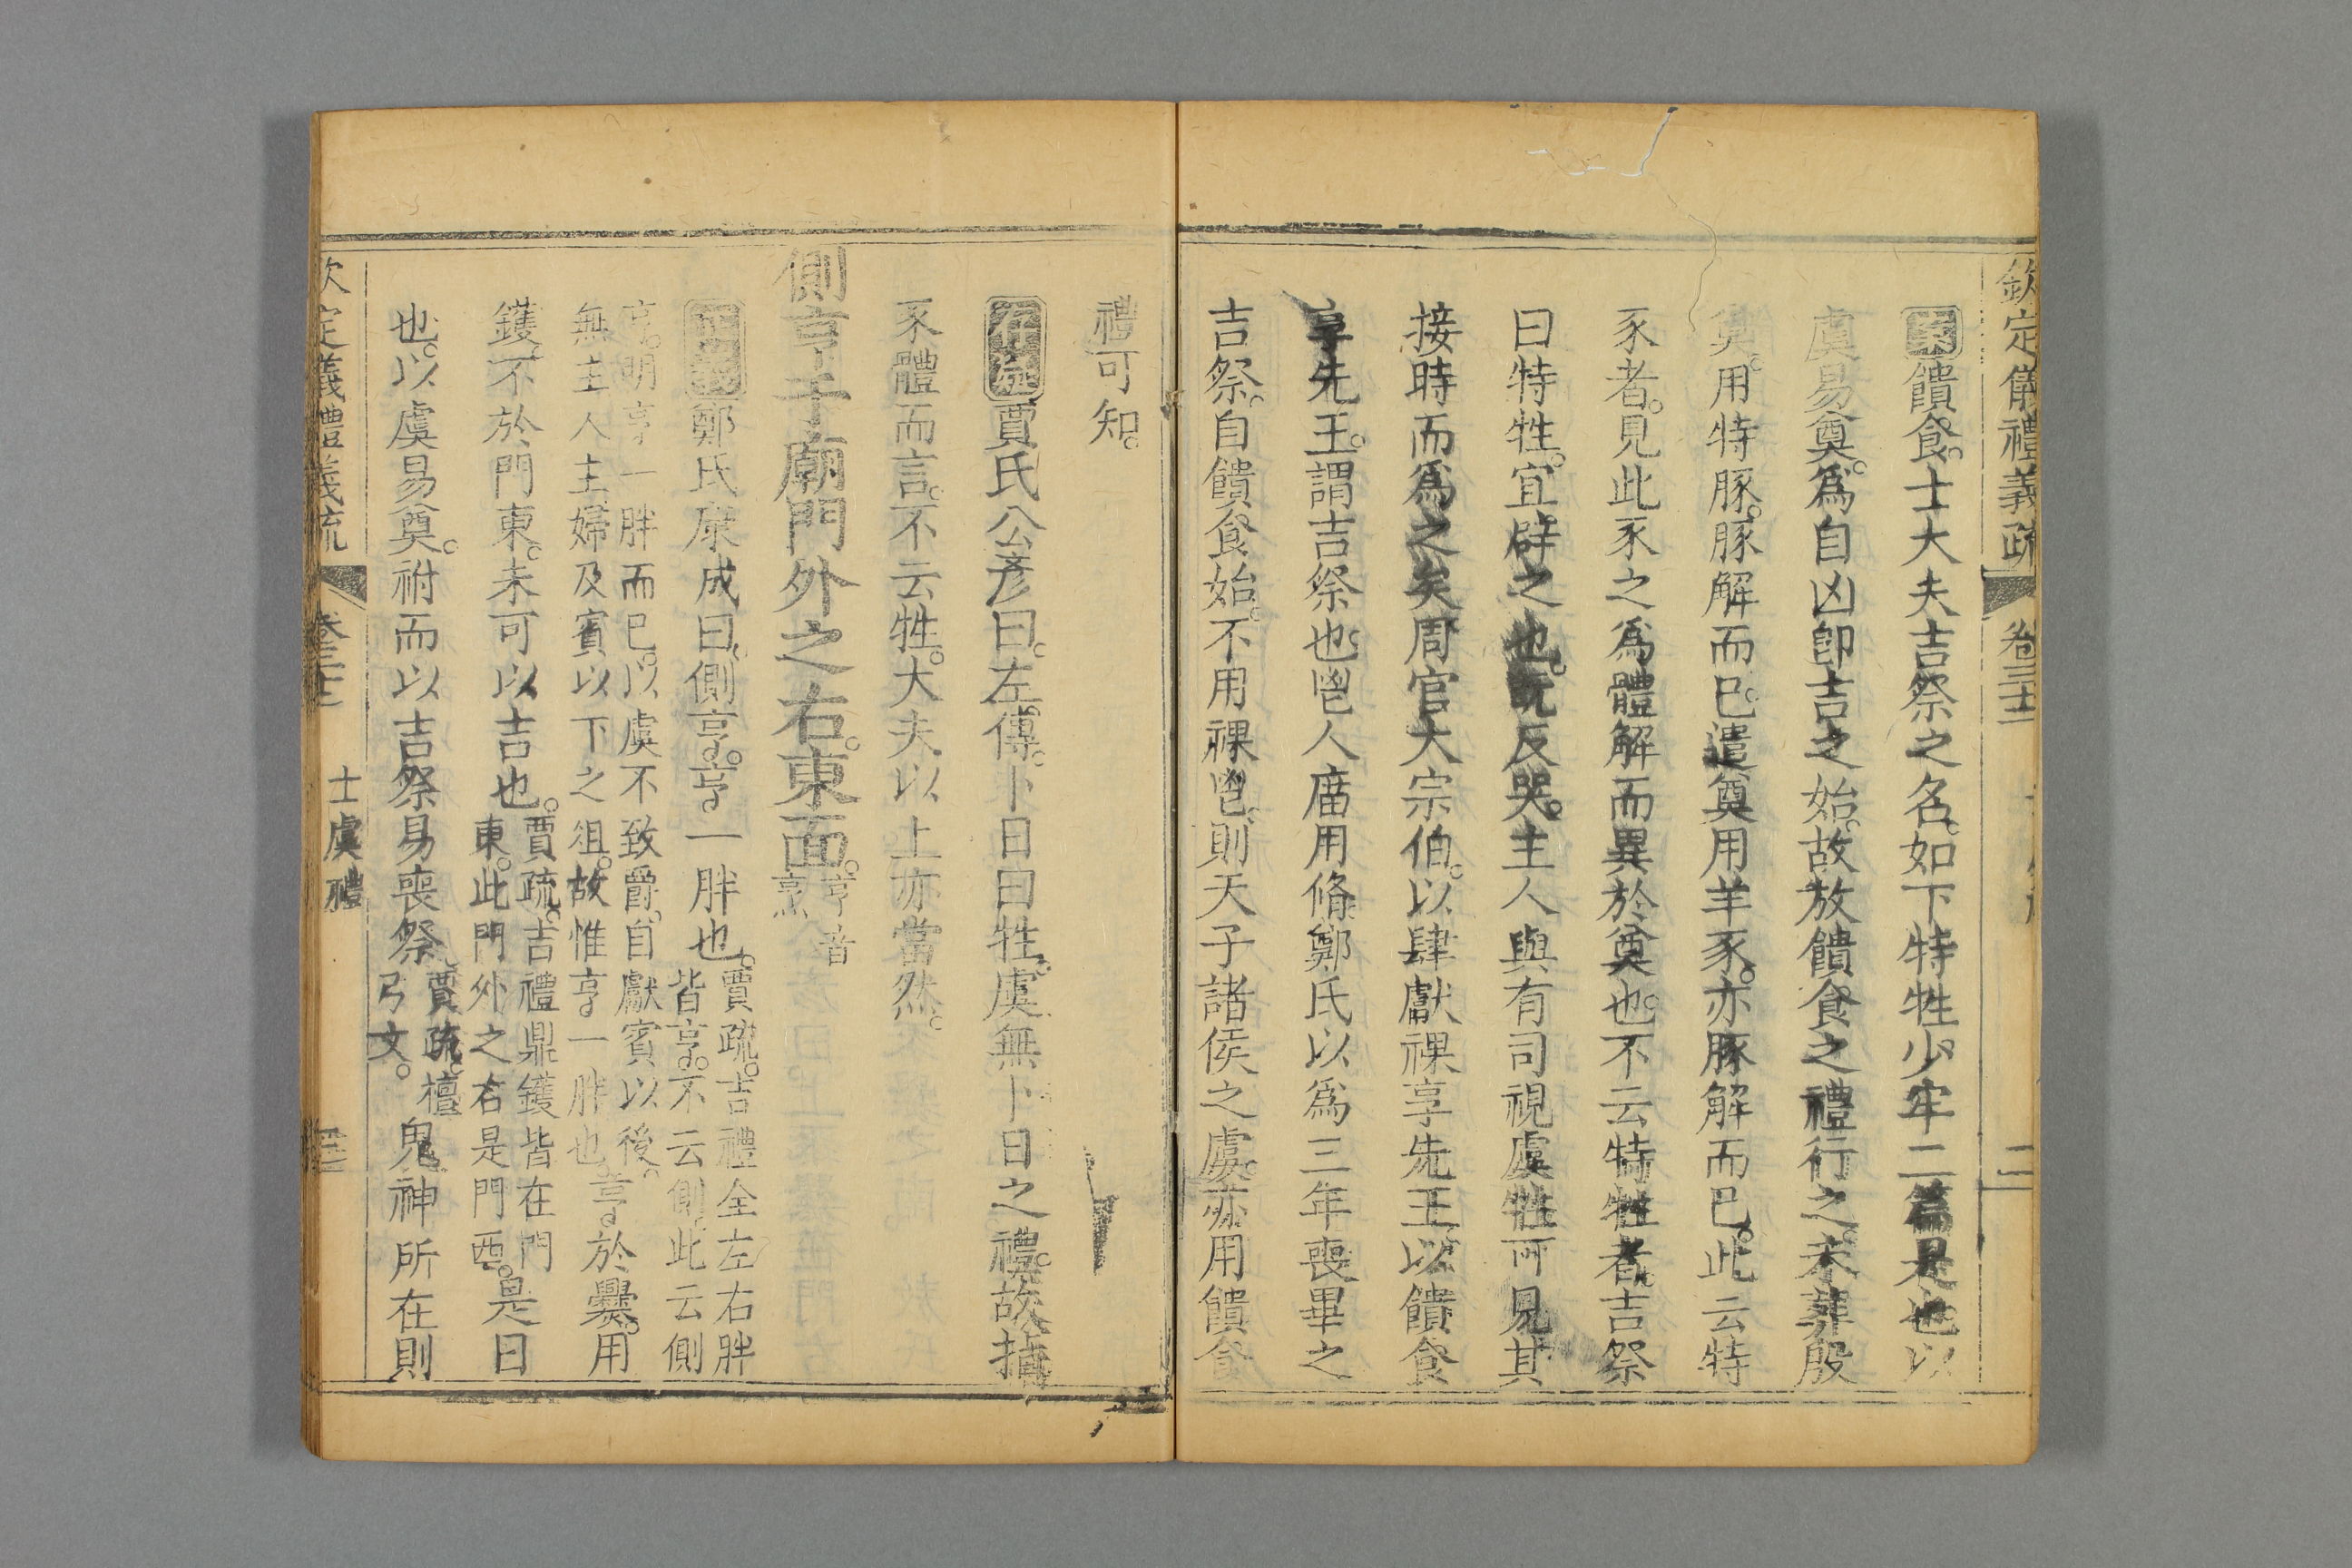 欽定儀禮義疏 卷三十三 二
案饋食。士大夫吉祭之名。如下特牲少牢二篇是也。以
虞易奠。爲自凶卽吉之始。故放饋食之禮行之。未葬殷
奠。用特豚。豚解而已。遣奠用羊豕。亦豚解而已。此云特
豕者。見此豕之爲體解而異於奠也。不云特牲者。吉祭
曰特牲。宜辟之也。旣反哭。主人與有司視虞牲。可見其
接時而爲之矣。周官大宗伯。以肆獻祼享先王。以饋食
享先王。謂吉祭也。鬯人廟用脩。鄭氏以爲三年喪畢之
吉祭。自饋食始。不用祼鬯。則天子諸侯之虞。亦用饋食
禮可知。
存疑賈氏公彥曰。左傳。卜日曰牲。虞無卜日之禮。故指
豕體而言。不云牲。大夫以上亦當然。
側亨于廟門外之右。東面。亨音
烹
正義鄭氏康成曰。側亨。亨一胖也。賈疏。吉禮全左右胖
皆亨。不云側。此云側
亨。明亨一胖而已。以虞不致爵。自獻賓以後。
無主人主婦及賓以下之俎。故惟亨一胖也。亨於爨。用
鑊。不於門東。未可以吉也。賈疏。吉禮鼎鑊皆在門
東。此門外之右。是門西。是日
也。以虞易奠。祔而以吉祭易喪祭。賈疏。檀
弓文。鬼神所在則
欽定儀禮義疏 士虞禮